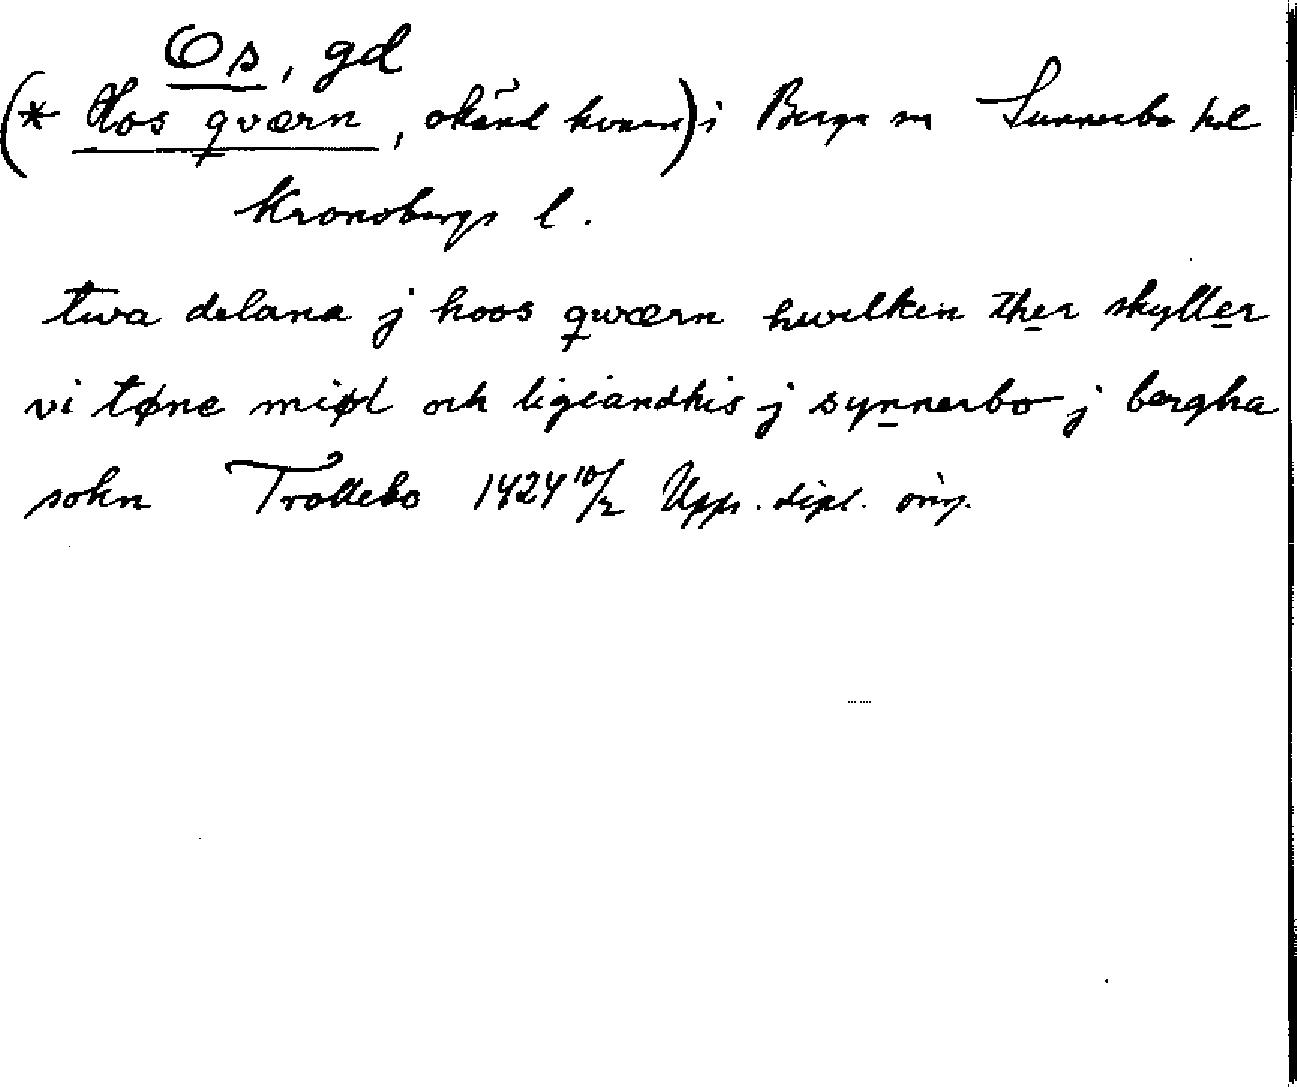 Os, gd
(* Hos qværn, okänd kvarn) i Berga sn Sunnerbo hd
Kronobergs l.
twa delana j hoos qwærn huilken ther skyller
vi tøne miøl och ligiandhis j synnerbo j bergha
sokn Trollebo 1424 10/2 Upps. dipl. orig.